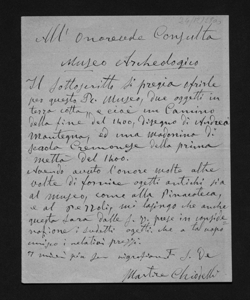 All' Onorevole Consulta
Museo Archeologico
Il Sottoscritto si pregia ofrirle
per questo Pa. Museo, due oggetti in
terra cotta, e cioè un Camino
della fine del 1400, disegno di Andrea
Mantegna, ed una madonina di
scuola Cremonese della prima
metta del 1400.
Avendo avuto l'onore molte altre
volte di fornire ogetti antichi sia
al museo, come alla Pinacoteca,
e al Pezzoli, mi lusingo che anche
questa sara dalla S. V. presa in
i suditti ogetti, che a tal uopo
unisco i relativi prezzi.